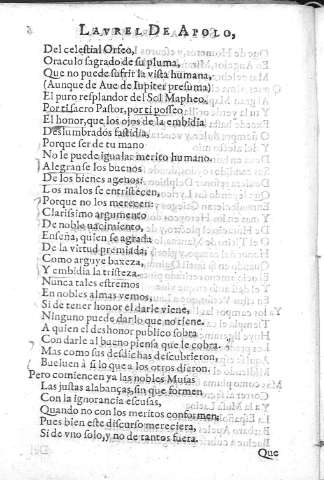 LAVREL DE APOLO,
Del celestial Orfeo,
Oraculo sagrado de su pluma,
Que no puede sufrir la vista humana,
(Aunque de Aue de Iupiter presuma)
El puro resplandor del Sol Mapheo.
Por ti sacro Pastor, por ti posseo
El honor, que los ojos de la embidia
Deslumbrados fastidia,
Porque ser de tu mano
No le puede igualar merito humano.
Alegranse los buenos
De los bienes agenos:
Los malos se entristecen,
Porque no los merecen:
Clarissimo argumento
De noble nacimiento,
Enseña, quien se agrada
De la virtud premiada,
Como arguye baxeza,
Y embidia la tristeza.
Nunca tales estremos
En nobles almas vemos,
Si de tener honor el darle viene,
Ninguno puede darlo que no tiene.
A quien el deshonor publico sobra
Con darle al bueno piensa que le cobra.
Mas como sus desdichas descubrieron,
Bueluen à si lo que a los otros dieron.
Pero comiencen ya las nobles Musas
Las justas alabanças, sin que formen
Con la ignorancia escusas,
Quando no con los meritos conformen,
Pues bien este discurso mereciera,
Si de vno solo, y no de tantos fuera.
Que